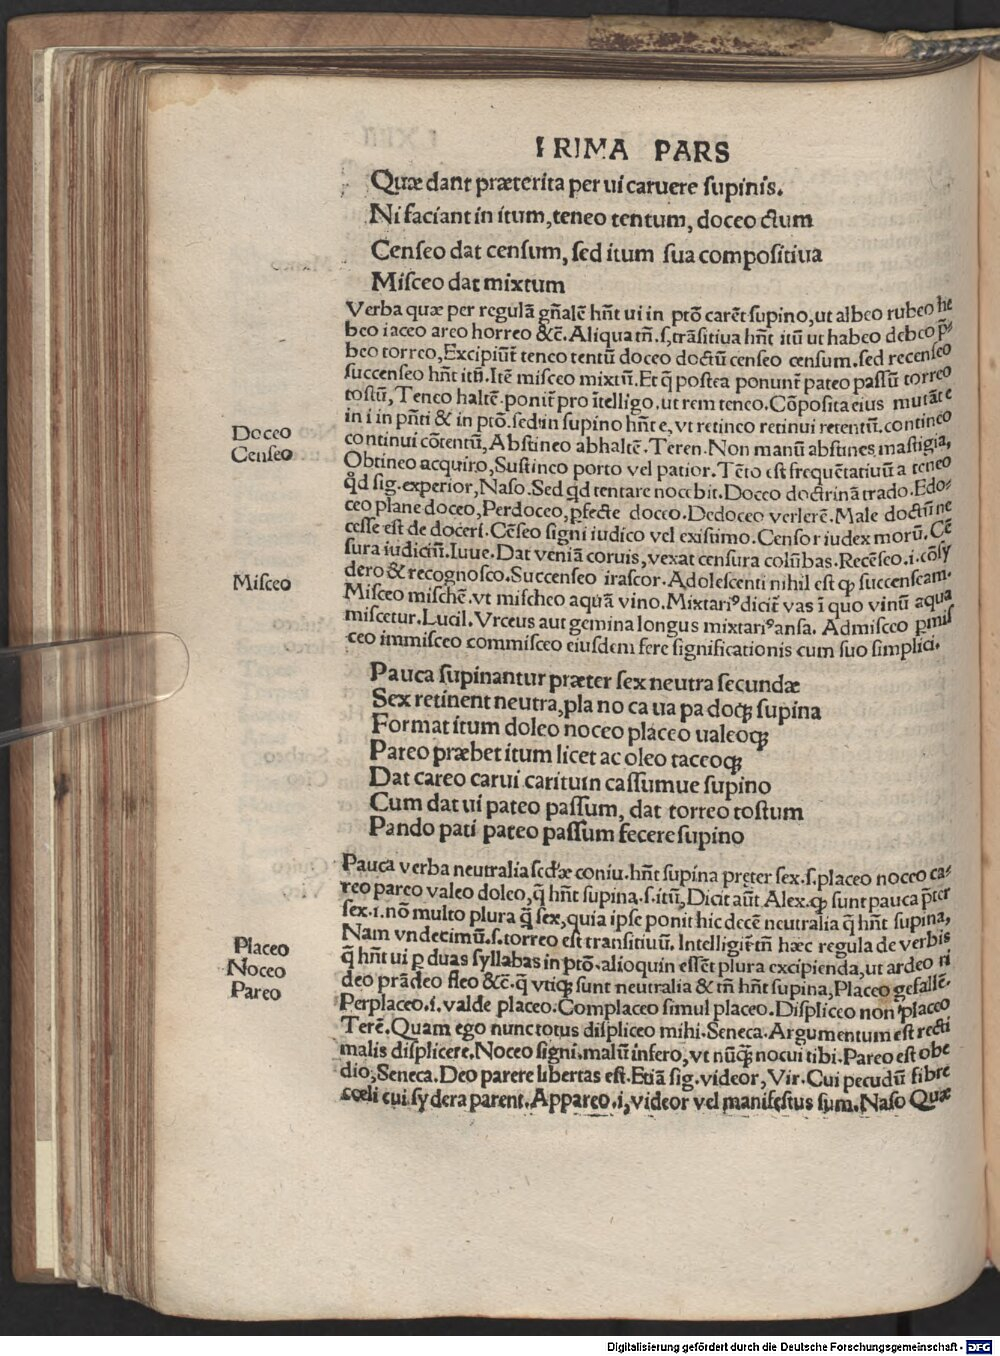 PRIMA PARS
Quæ dant præterita per ui caruere supinis.
Ni faciant in itum, teneo tentum, doceo ctum
Censeo dat censum, sed itum sua compositiua
Misceo dat mixtum
Verba quæ per regulā gñalē hñt ui in ptō carēt supino, ut albeo rubeo he
beo iaceo areo horreo &c̄. Aliqua tñ. s, trāsitiua hñt itū ut habeo debeo p̄
beo torreo, Excipiūt̃ teneo tentū doceo doctū censeo censum. sed recenseo
succenseo hñt itū. Itē misceo mixtū. Et q̄ postea ponunt̃ pateo passū torreo
tostū, Teneo haltē. ponit̃ pro ītelligo. ut rem teneo. Cōposita eius mutāt e
in i in pñti & in ptō. sed in supino hñt e, vt retineo retinui retentū. contineo
Doceo
continui cōtentū, Abstineo abhaltē. Teren. Non manū abstines mastigia,
Censeo
Obtineo acquiro, Sustineo porto vel patior. Tēto est frequētatiuū a teneo
qd sig. experior, Naso. Sed qd tentare nocebit. Doceo doctrinā trado. Edo-
ceo plane doceo, Perdoceo, pfecte doceo. Dedoceo verlerē. Male doctū ne
cesse est de doceri. Cēseo signi iudico vel existimo. Censor iudex morū. Cē
sura iudiciū. Iuue. Dat veniā coruis, vexat censura colūbas. Recēseo. i. cōsy
dero & recognosco. Succenseo irascor. Adolescenti nihil est qp succenseam.
Misceo
Misceo mischē. vt mischeo aquā vino. Mixtari⁹ dicit̃ vas ī quo vinū aqua
miscetur. Lucil. Vrceus aut gemina longus mixtari⁹ ansa. Admisceo pmis
ceo immisceo commisceo eiusdem fere significationis cum suo simplici.
Pauca supinantur præter sex neutra secundæ
Sex retinent neutra, pla no ca ua pa doqꝫ supina
Format itum doleo noceo placeo ualeoqꝫ
Pareo præbet itum licet ac oleo taceoqꝫ
Dat careo carui caritum cassumue supino
Cum dat ui pateo passum, dat torreo tostum
Pando pati pateo passum fecere supino
Pauca verba neutralia scdæ coniu. hñt supina preter sex. s. placeo noceo ca-
reo pareo valeo doleo, q̄ hñt supina. s. itū, Dicit aūt Alex. qp sunt pauca pter
sex. i. nō multo plura q̄ sex, quia ipse ponit hic decē neutralia q̄ hñt supina,
Nam vndecimū. s. torreo est transitiuū. Intelligit̃ tñ hæc regula de verbis
Placeo
q̄ hñt ui p duas syllabas in ptō. alioquin essēt plura excipienda, ut ardeo ri
Noceo
deo prādeo fleo &c̄. q̄ vtiqꝫ sunt neutralia & tñ hñt supina, Placeo gefallē.
Pareo
Perplaceo. i. valde placeo. Complaceo simul placeo. Displiceo non placeo
Terē. Quam ego nunc totus displiceo mihi. Seneca. Argumentum est recti
malis displicere. Noceo signi. malū infero, vt nūqꝫ nocui tibi. Pareo est obe
dio, Seneca. Deo parere libertas est. Etiā sig. videor, Vir. Cui pecudū fibre
cœli cui sydera parent. Appareo. i, videor vel manifestus sum. Naso Quæ
Digitalisierung gefördert durch die Deutsche Forschungsgemeinschaft - DFG